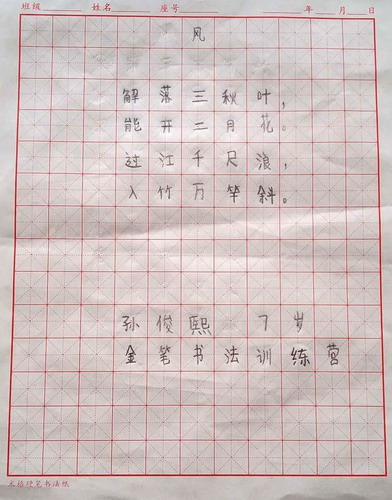 班级 姓名 座号 年 月 日
风
解落三秋叶，
能开二月花。
过江千尺浪，
入竹万竿斜。
孙俊熙 7岁
金笔书法训练营
硬笔书法纸